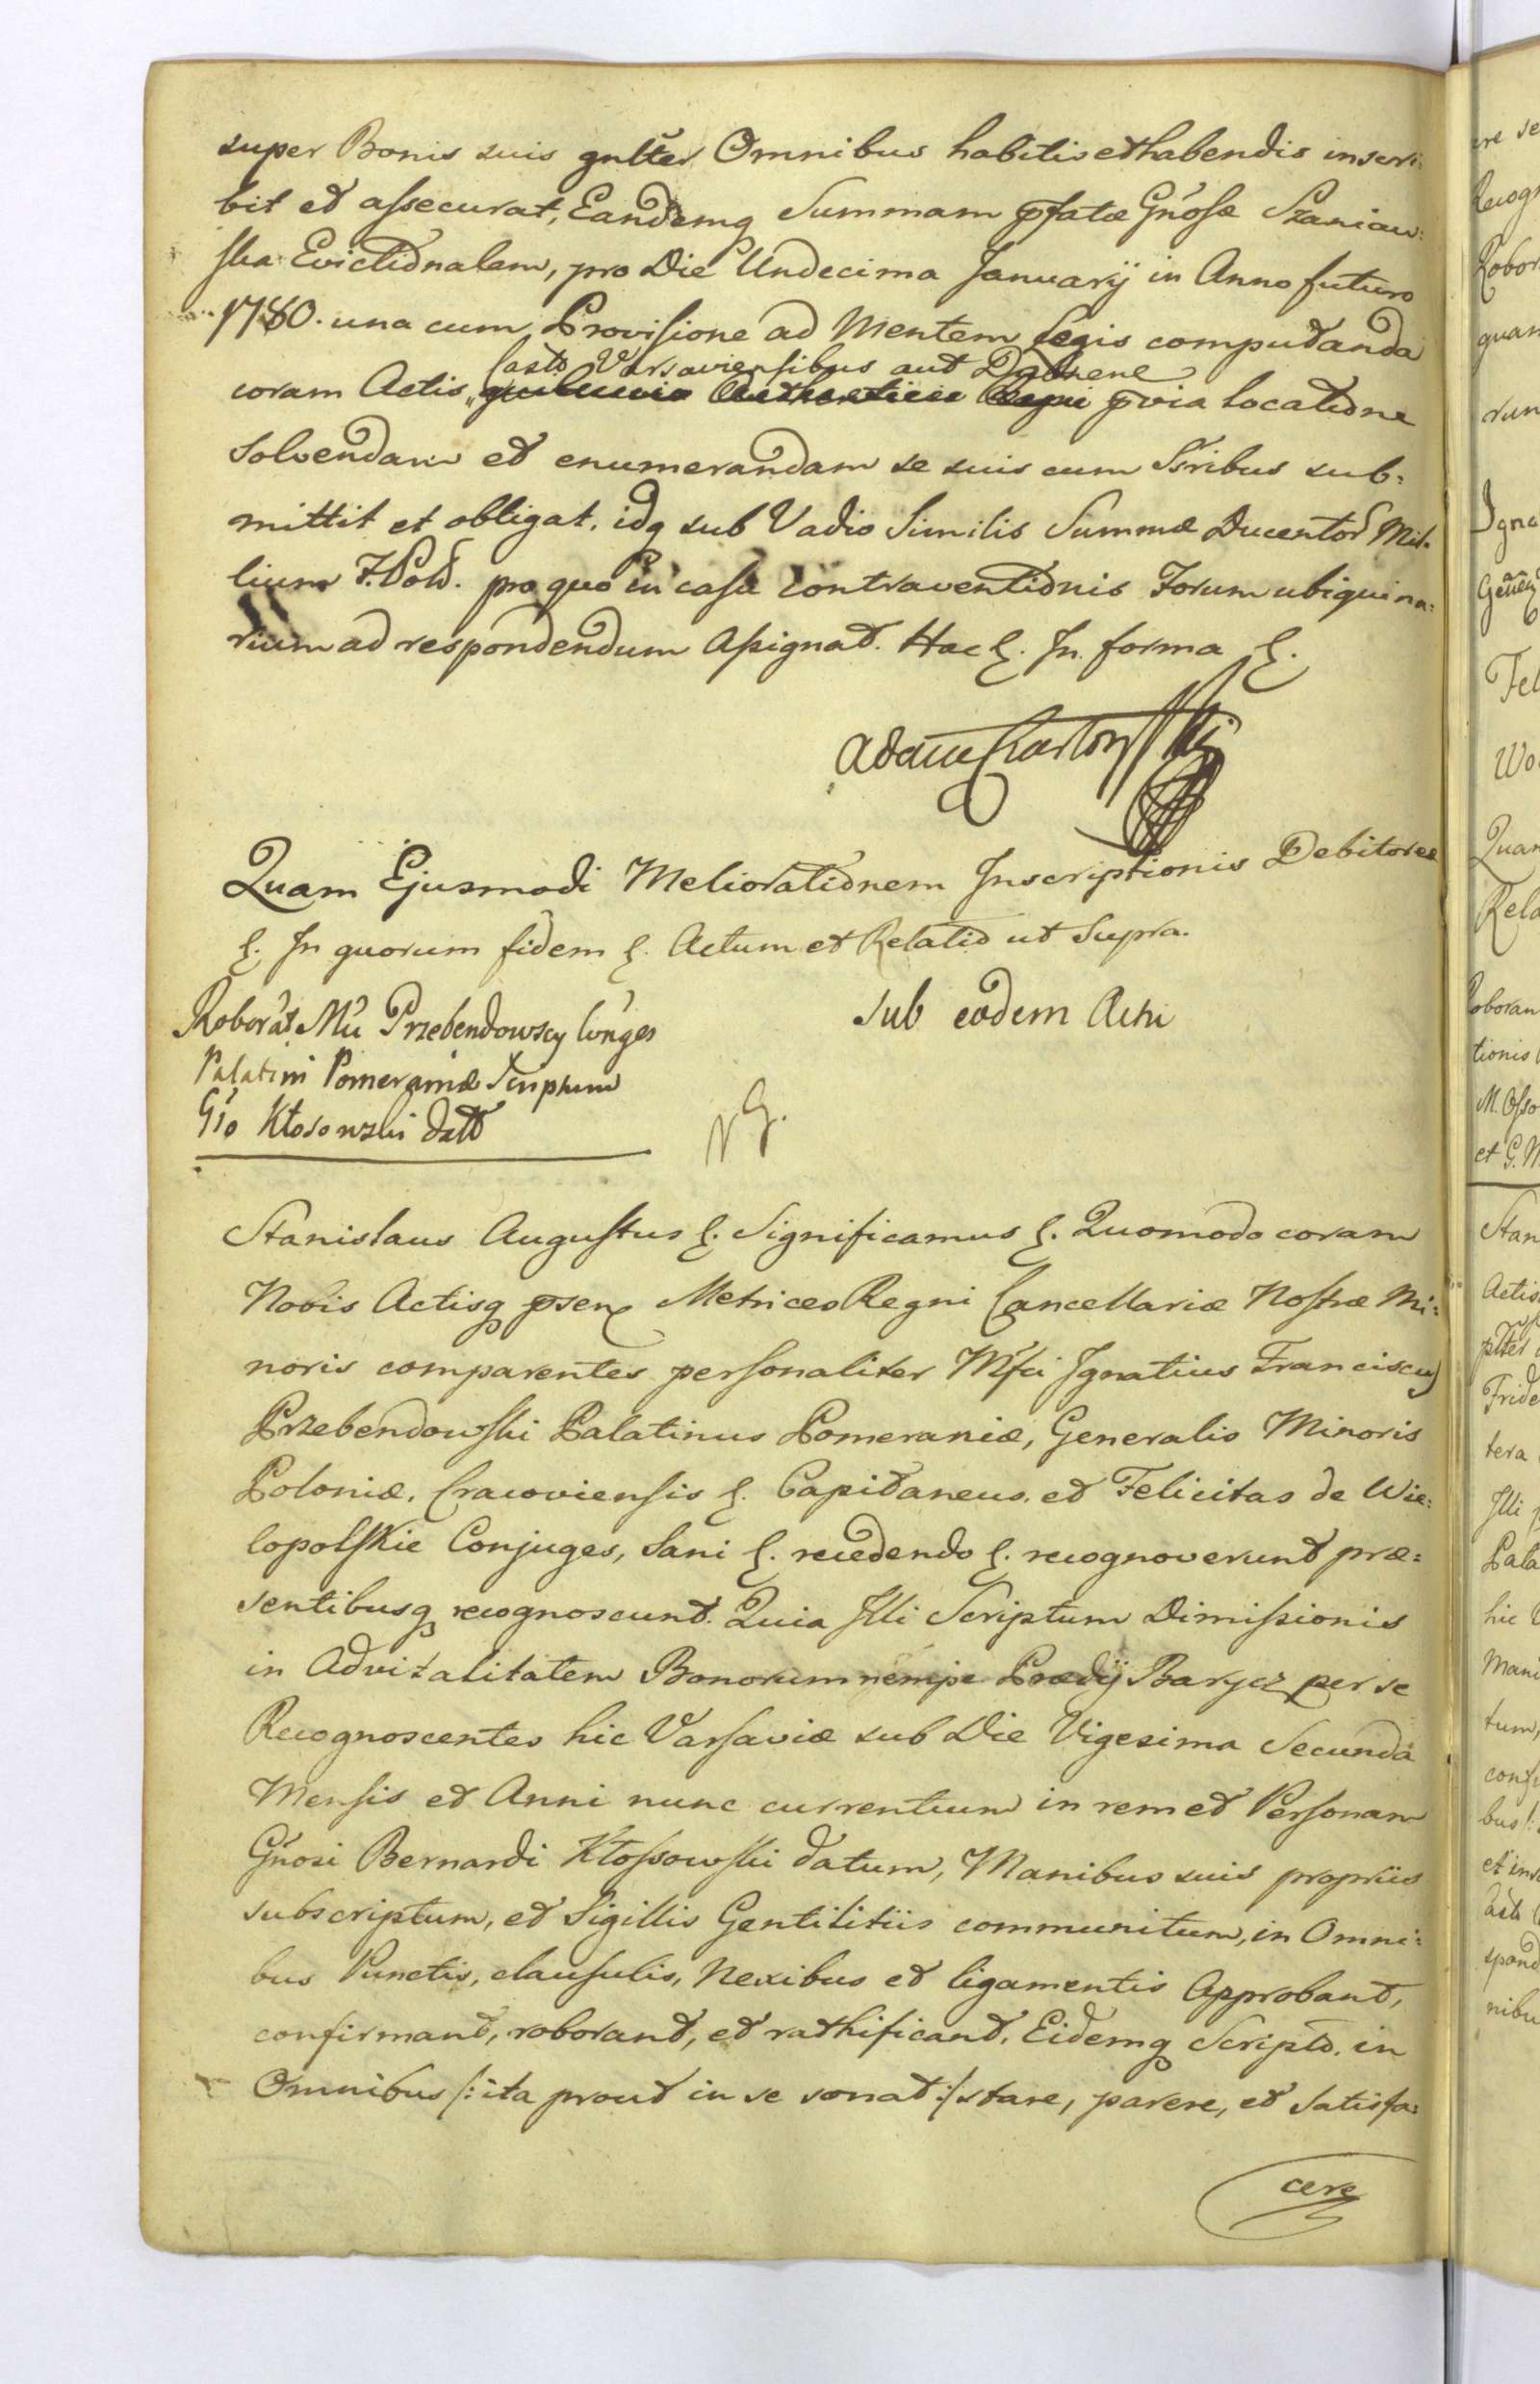 super Bonis suis gnlter Omnibus habitis et habendis inscri:
bit et assecurat, Eandemq Summam pfatæ Gnosæ Szaniaw:
ska Evictionalem, pro Die Undecima Januarij in Anno futuro
1780. una cum Provisione ad Mentem Legis computanda
Castr Varsaviensibus aut
coram Actis pvia locatione
solvendam et enumerandam se suis cum Ssribus sub:
mittit et obligat, idq sub Vadio Similis Summæ Ducentor Mil:
lium F. Pold. pro quo in casu contraventionis Forum ubiquina:
rium ad respondendum assignat. Hac &. In forma &.
Adam
Quam Ejusmodi Meliorationem Inscriptionis Debitores
&. In quorum fidem &. Actum et Relatio ut Supra.
Sub eodem Actu
Roborat Mci Przebendowscy Conges
Palatini Pomeraniæ Scriptum
Gso Kłosowski datt
Stanislaus Augustus &. Significamus &. Quomodo coram
Nobis Actisq psen Metrices Regni Cancellariæ Nostræ Mi:
noris comparentes personaliter Mfci Ignatius Franciscus
Przebendowski Palatinus Pomeraniæ, Generalis Minoris
Poloniæ, Cracoviensis &. Capitaneus, et Felicitas de Wie:
lopolskie Conjuges, Sani &. recedendo &. recognoverunt præ:
sentibusq recognoscunt. Quia Illi Scriptum Dimissionis
in Advitalitatem Bonorum nempe Prædij Barycz per se
Recognoscentes hic Varsaviæ sub Die Vigesima Secunda
Mensis et Anni nunc currentium in rem et Personam
Gnosi Bernardi Kłossowski datum, Manibus suis propriis
subscriptum, et Sigillis Gentilitiis communitum, in Omni:
bus Punctis, clausulis, Nexibus et ligamentis Approbant,
confirmant, roborant, et rathificant, Eidemq Scripto. in
Omnibus /: ita prout in se sonat :/ stare, parere, et Satisfa:
cere